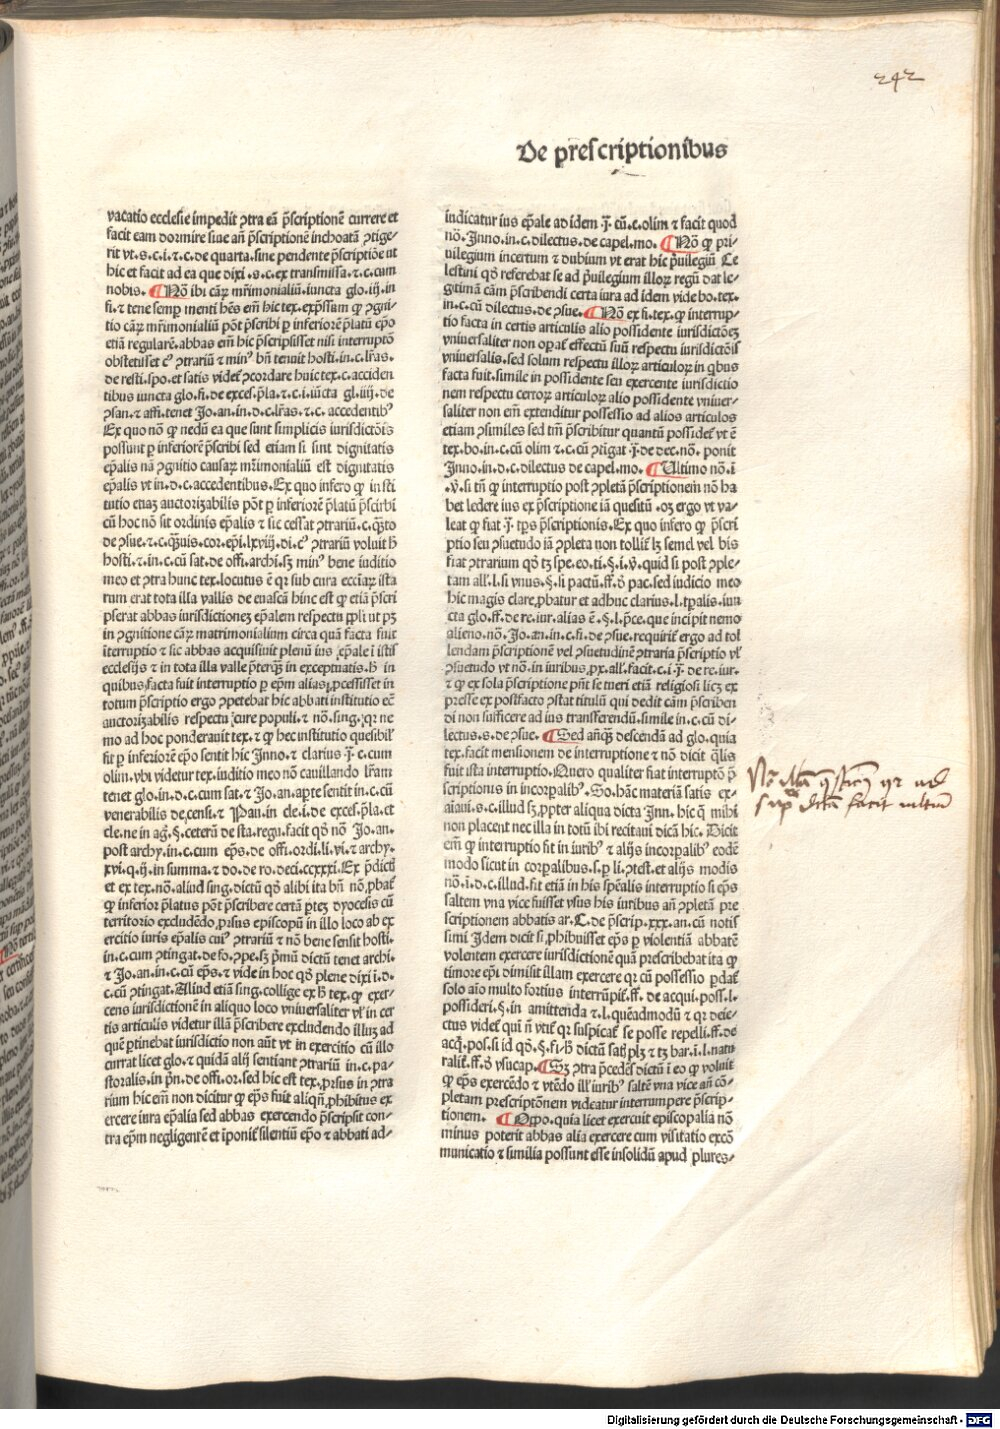 242
De prescriptionibus
vacatio ecclesie impedit ꝯtra eã p̃scriptionẽ currere et
facit eam dormire siue añ p̃scriptionẽ inchoatã ꝯtige⸗
rit vt.s.c.i.⁊.c.de quarta.sine pendente p̃scriptiõe ut
hic et facit ad ea que dixi.s.c.ex transmissa.⁊.c.cum
nobis. ¶ Nõ ibi cãꝝ mr̃imonialiũ.iuncta glo.iij.in
fi.⁊ tene semꝑ menti hẽs em̃ hic tex.exp̃ssum ꝙ ꝯgni⸗
tio cãꝝ mr̃imonialiũ põt p̃scribi ꝑ inferiorẽ p̃latũ ep̃o
etiã regularẽ.abbas em̃ hic p̃scripsisset nisi interruptõ
obstetisset cꝰ ꝯtrariũ ⁊ minꝰ bñ tenuit hosti.in.c.lr̃as.
de resti.spo.et satis videt᷑ ꝯcordare huic tex.c.acciden
tibus iuncta glo.fi.de exces.p̃la.⁊.c.i.iũcta gl.iiij.de
ꝯsan.⁊ affi.tenet Jo.an.in.d.c.lr̃as.⁊.c. accedentibꝰ
Ex quo nõ ꝙ nedũ ea que sunt simplicis iurisdictõis
possunt ꝑ inferiorẽ p̃scribi sed etiam si sint dignitatis
ep̃alis nã ꝯgnitio causaꝝ mr̃imonialiũ est dignitatis
ep̃alis vt in.d.c.accedentibus.Ex quo infero ꝙ insti
tutio etiaꝫ auctorizabilis põt ꝑ inferiorẽ p̃latũ p̃scribi
cũ hoc nõ sit ordinis ep̃alis ⁊ sic cessat ꝯtrariũ.c.qꝫto
de ꝯsue.⁊.c.qꝫuis.cor.ep̃i.lxviij.di.cꝰ ꝯtrariũ voluit h̃
hosti.⁊.in.c.cũ sat.de offi.archi.sꝫ minꝰ bene iuditio
meo et ꝯtra hunc tex.locutus ẽ qr sub cura ecc̃iaꝝ ista
rum erat tota illa vallis de euascã hinc est ꝙ etiã p̃scri
pserat abbas iurisdictionẽ ep̃alem respectu ppl̃i ut pꝫ
in ꝯgnitione cãꝝ matrimonialium circa quã facta fuit
ĩterruptio ⁊ sic abbas acquisiuit plenũ ius ep̃ale ĩ istis
ecclesijs ⁊ in tota illa valle p̃terqꝫ in exceptuatis.h̃ in
quibus facta fuit interruptio ꝑ ep̃m alias ꝓcessisset in
totum p̃scriptio ergo ꝯpetebat hic abbati institutio eẽ
auctorizabilis respectu cure populi.⁊ nõ.sing.qr ne
mo ad hoc ponderauit tex.⁊ ꝙ hec institutio quesibil'
fit ꝑ inferiorẽ ep̃o sentit hic Jnno.⁊ clarius.j.c.cum
olim.vbi videtur tex.iuditio meo nõ cauillando lr̃am
tenet glo.in.d.c.cum sat.⁊ Jo.an.aꝑte sentit in.c.cũ
venerabilis de censi.⁊ Pau.in cle.i.de exces.p̃la.et
cle.ne in ag̃.§.ceterũ de sta.regu.facit qõ nõ Jo.an.
post archy.in.c.cum ep̃s.de offi.ordi.li.vi.⁊ archy.
xvi.q.ij.in summa.⁊ do.de ro.deci.ccxxxi.Ex p̃dictis
et ex tex.nõ.aliud sing.dictũ qõ alibi ita bñ nõ ꝓbat᷑
ꝙ inferior p̃latus põt p̃scribere certã ꝑteꝫ dyocesis cũ
territorio excludẽdo ꝓrsus episcopũ in illo loco ab ex
ercitio iuris ep̃alis cuiꝰ ꝯtrariũ ⁊ nõ bene sensit hosti.
in.c.cum ꝯtingat.de fo.ꝯpe.sꝫ p̃mũ dictũ tenet archi.
⁊ Jo.an.in.c.cũ ep̃s.⁊ vide in hoc qõ plene dixi ĩ.d.
c.cũ ꝯtingat.Aliud etiã sing.collige ex h̃ tex.ꝙ exer⸗
cens iurisdictionẽ in aliquo loco vniuersaliter vl' in cer
tis articulis videtur illã p̃scribere excludendo illuꝫ ad
quẽ ꝑtinebat iurisdictio non aũt vt in exercitio cũ illo
currat licet glo.⁊ quidã alij sentiant ꝯtrariũ in.c.pa⸗
storalis.in prĩ.de offi.or.sed hic est tex.ꝓrsus in ꝯtra
rium hic em̃ non dicitur ꝙ ep̃s fuit aliqñ ꝓhibitus ex
ercere iura ep̃alia sed abbas exercendo p̃scripsit con⸗
tra ep̃m negligentẽ et ĩponit᷑ silentiũ ep̃o ⁊ abbati ad⸗
iudicatur ius ep̃ale ad idem.j.cũ.c.olim ⁊ facit quod
nõ.Jnno.in.c.dilectus.de capel.mo. ¶ Nõ ꝙ pri⸗
uilegium incertum ⁊ dubium vt erat hic p̃uilegiũ Ce
lestini qõ referebat se ad p̃uilegium illoꝝ regũ dat le⸗
gitimã cãm p̃scribendi certa iura ad idem vide bo.tex.
in.c.cũ dilectus.de ꝯsue. ¶ Nõ ex fi.tex.ꝙ interrup⸗
tio facta in certis articulis alio possidente iurisdictõeꝫ
vniuersaliter non oꝑat᷑ effectũ suũ respectu iurisdictõis
vniuersalis.sed solum respectu illoꝝ articuloꝝ in qbus
facta fuit.simile in possidente seu exercente iurisdictio
nem respectu certoꝝ articuloꝝ alio possidente vniuer⸗
saliter non em̃ extenditur possessio ad alios articulos
etiam ꝯsimiles sed tm̃ p̃scribitur quantũ possidet᷑ vt ẽ
tex.bo.in.c.cũ olim ⁊.c.cũ ꝯtigat.j.de dec.nõ. ponit
Jnno.in.d.c.dilectus de capel.mo. ¶ Ultimo nõ.ĩ
.ꝟ.si tñ ꝙ interruptio post ꝯpletã p̃scriptionem nõ ha
bet ledere ius ex p̃scriptione iã quesitũ.oꝫ ergo vt va⸗
leat ꝙ fiat.j.tꝑs p̃scriptionis.Ex quo infero ꝙ p̃scri
ptio seu ꝯsuetudo iã ꝯpleta non tollit᷑ lꝫ semel vel bis
fiat ꝯtrarium qõ tꝫ spe.eo.ti.§.i.ꝟ.quid si post ꝯple⸗
tam all'.l.si vnus.§.si pactũ.ff.õ pac.sed iudicio meo
hic magis clare ꝓbatur et adhuc clarius.l.tꝑalis.iun
cta glo.ff.de re.iur.alias ẽ.§.l.p̃ce.que incipit nemo
alieno.nõ.Jo.an.in.c.fi.de ꝯsue.requirit᷑ ergo ad tol
lendam p̃scriptionẽ vel ꝯsuetudinẽ ꝯtraria p̃scriptio vl'
ꝯsuetudo vt nõ.in iuribus ꝓx.all'.facit.c.i.j.de re.iur.
⁊ ꝙ ex sola p̃scriptione pñt se tueri etiã religiosi licꝫ ex
presse ex postfacto ꝯstat titulũ qui dedit cãm p̃scriben
di non sufficere ad ius transferendũ.simile in.c.cũ di⸗
lectus.s.de ꝯsue. ¶ Sed anq̃ꝫ descendã ad glo.quia
tex.facit mensionem de interruptione ⁊ nõ dicit q̃lis
fuit ista interruptio.Quero qualiter fiat interruptõ p̃
scriptionis in incorꝑalibꝰ.So.hãc materiã satis ex⸗
aĩaui.s.c.illud sꝫ ꝓpter aliqua dicta Jnn.hic q̃ mihi
non placent nec illa in totũ ibi recitaui dicã hic. Dicit
em̃ ꝙ interruptio fit in iuribꝰ ⁊ alijs incorꝑalibꝰ eodẽ
modo sicut in corꝑalibus.s.ꝑ li.ꝯtest.et alijs modis
nõ.ĩ.d.c.illud.fit etiã in his sp̃ealis interruptio si ep̃s
saltem vna vice fuisset vsus his iuribus añ ꝯpletã pre
scriptionem abbatis ar.C.de p̃scrip.xxx.an.cũ notis
simi Jdem dicit si ꝓhibuisset ep̃s ꝑ violentiã abbatẽ
volentem exercere iurisdictionẽ quã prescribebat ita ꝙ
timore ep̃i dimisit illam exercere qr cũ possessio ꝑdat᷑
solo aĩo multo fortius interrũpit᷑.ff.de acqui.poss.l.
possideri.§.in amittenda ⁊.l.quẽadmodũ ⁊ qr deie⸗
ctus videt᷑ qui ñ vtit᷑ qr suspicat᷑ se posse repelli.ff.de
acq̃.pos.si id qõ.§.fi.h̃ dictũ satis plꝫ ⁊ tꝫ bar.ĩ.l.natu
ralit᷑.ff.õ vsucap. ¶ Sꝫ ꝯtra p̃cedẽs dictũ ĩ eo ꝙ voluit
ꝙ ep̃s exercẽdo ⁊ vtẽdo ill' iuribꝰ saltẽ vna vice añ cõ⸗
pletam prescriptõnem videatur interrumpere p̃scrip⸗
tionem. ¶ Oppo.quia licet exercuit episcopalia nõ
minus poterit abbas alia exercere cum visitatio excõ
municatio ⁊ similia possunt esse insolidũ apud plures⸗
Digitalisierung gefördert durch die Deutsche Forschungsgemeinschaft - DFG